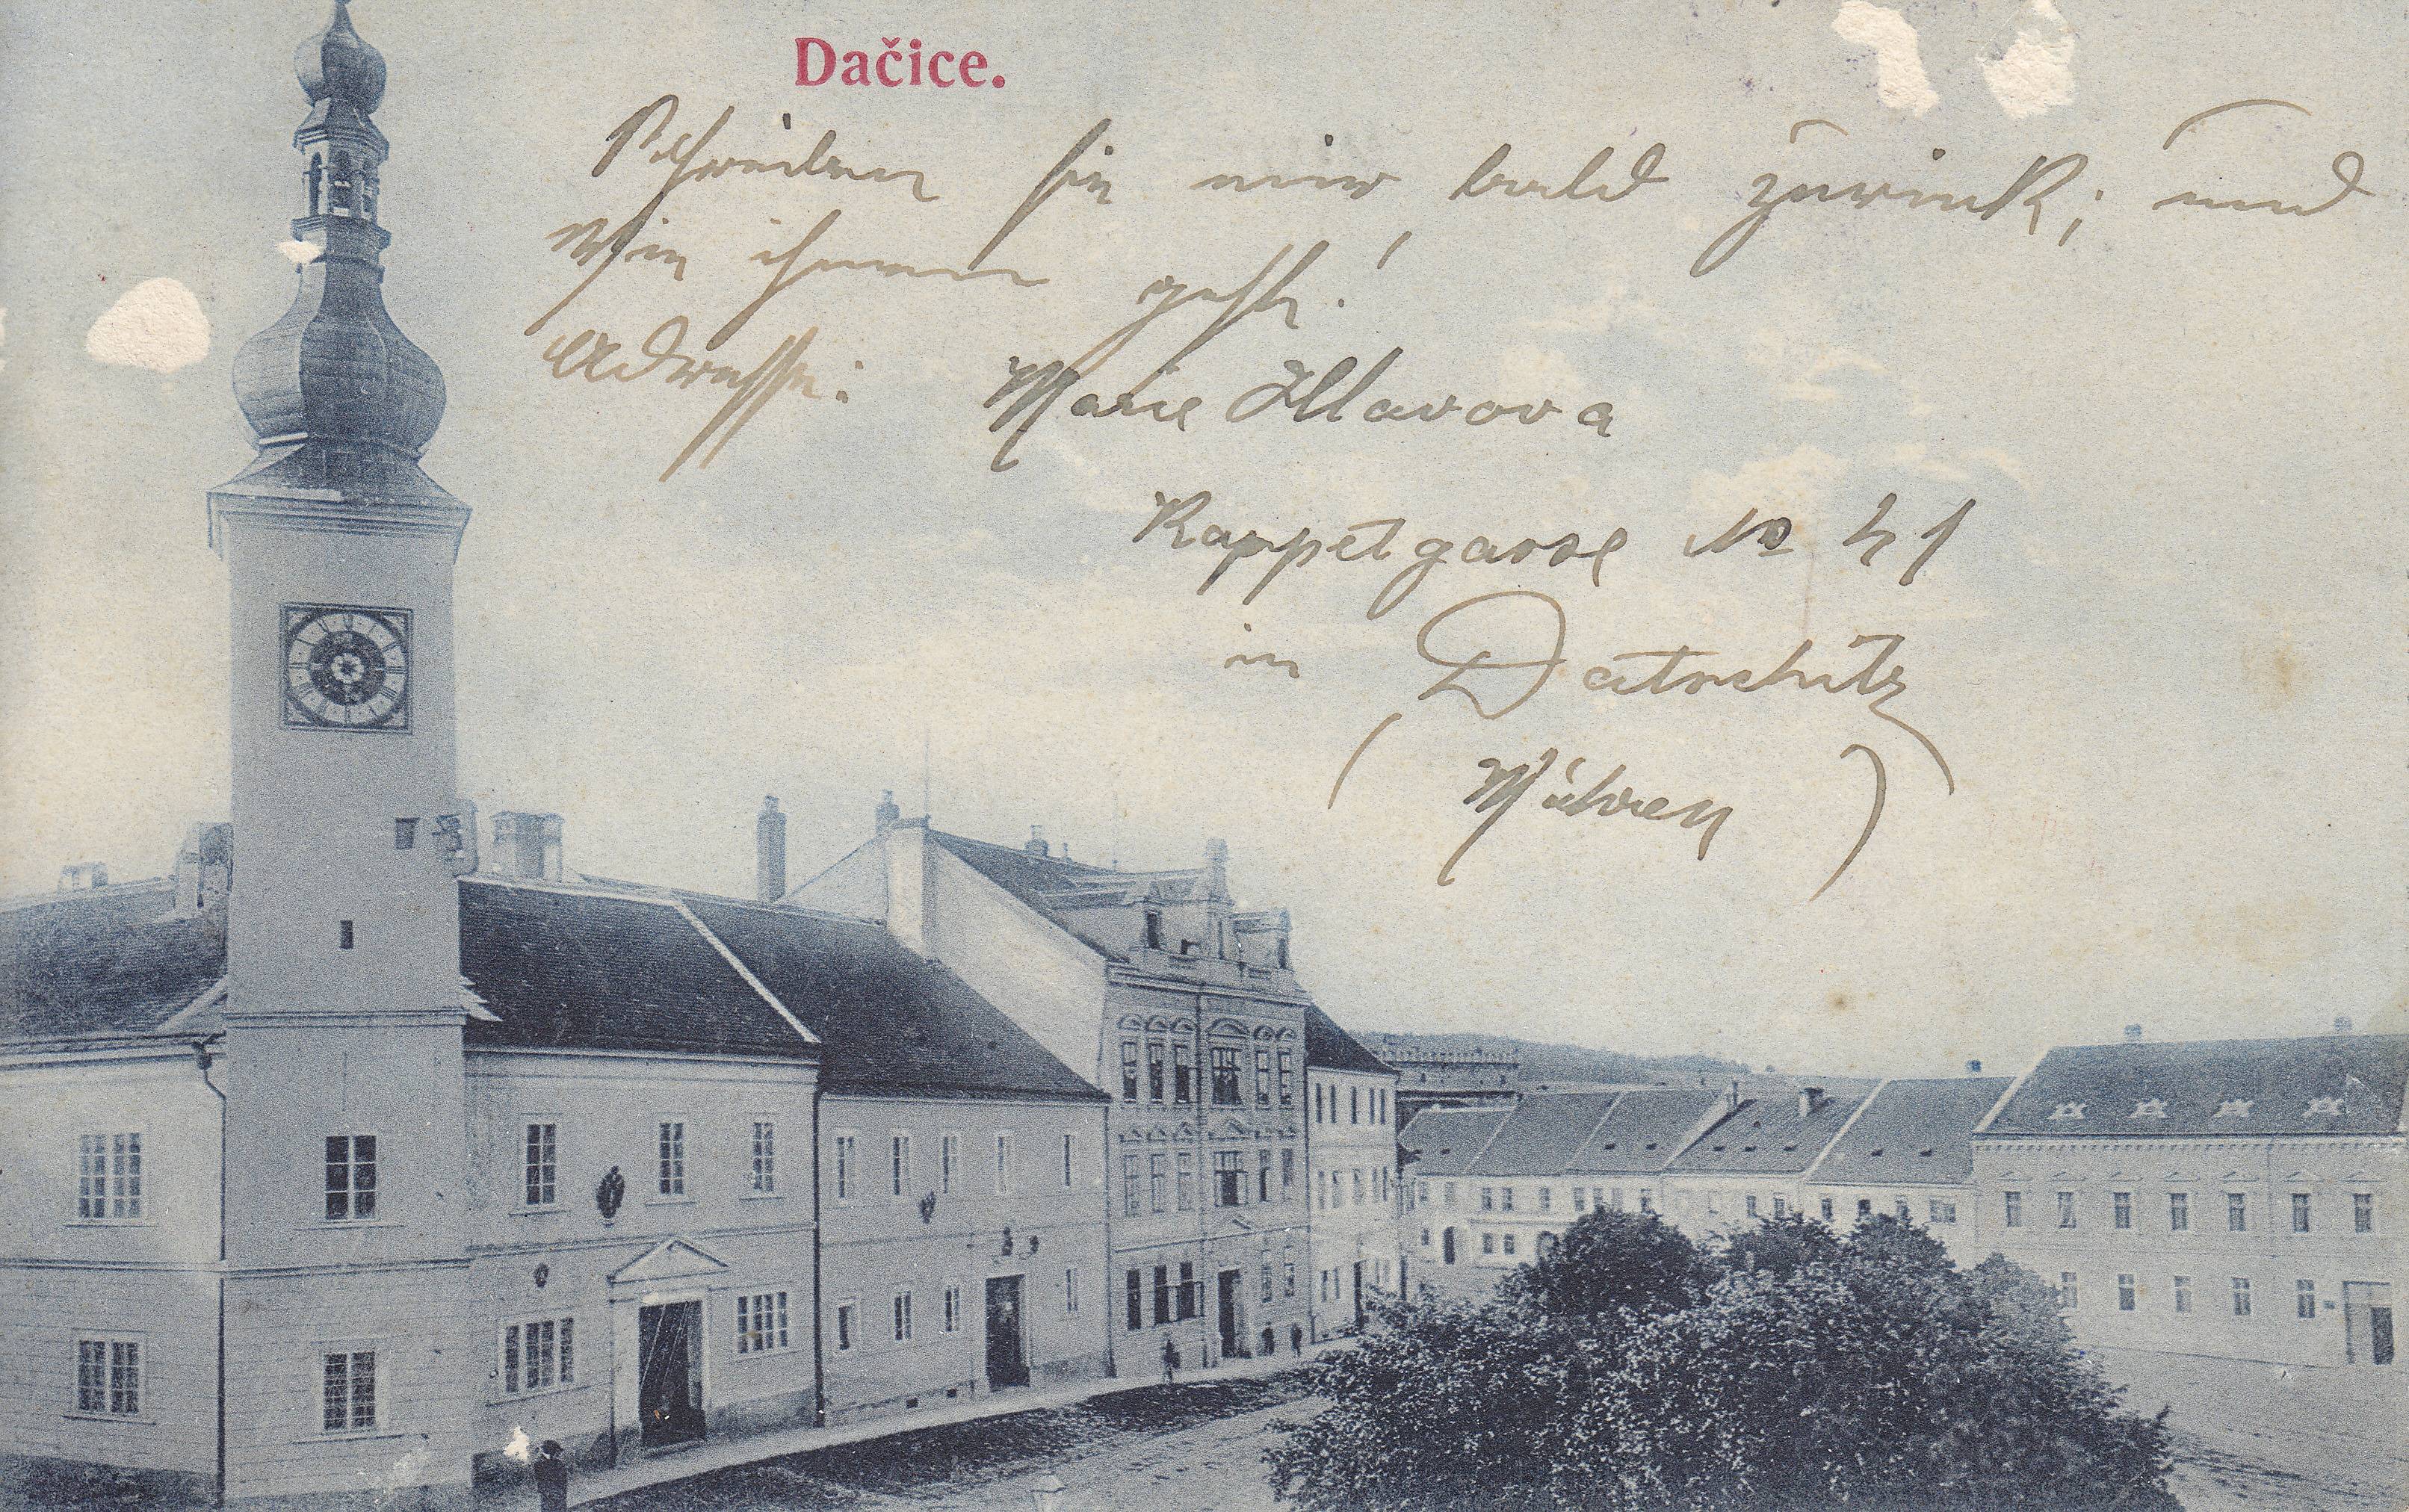 Dačice.
Schreiben sie mir bald zurück; und
Wie ihnen geht!
Adresse: Marie Hlavova
Kappetgasse No 41
in Datschitz
(Mähren)